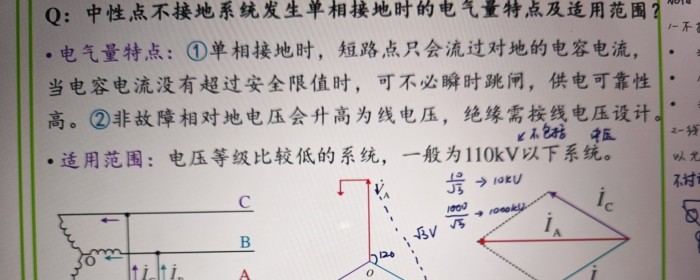 Q：中性点不接地系统发生单相接地时的电气量特点及适用范围？
·电气量特点：①单相接地时，短路点只会流过对地的电容电流，
当电容电流没有超过安全限值时，可不必瞬时跳闸，供电可靠性
高。②非故障相对地电压会升高为线电压，绝缘需按线电压设计。
不包括 中压
·适用范围：电压等级比较低的系统，一般为110kV以下系统。
10/√3 → 10kV
1000/√3 → 1000kV
C
B
A
O
√3V
120
o
İC
İA